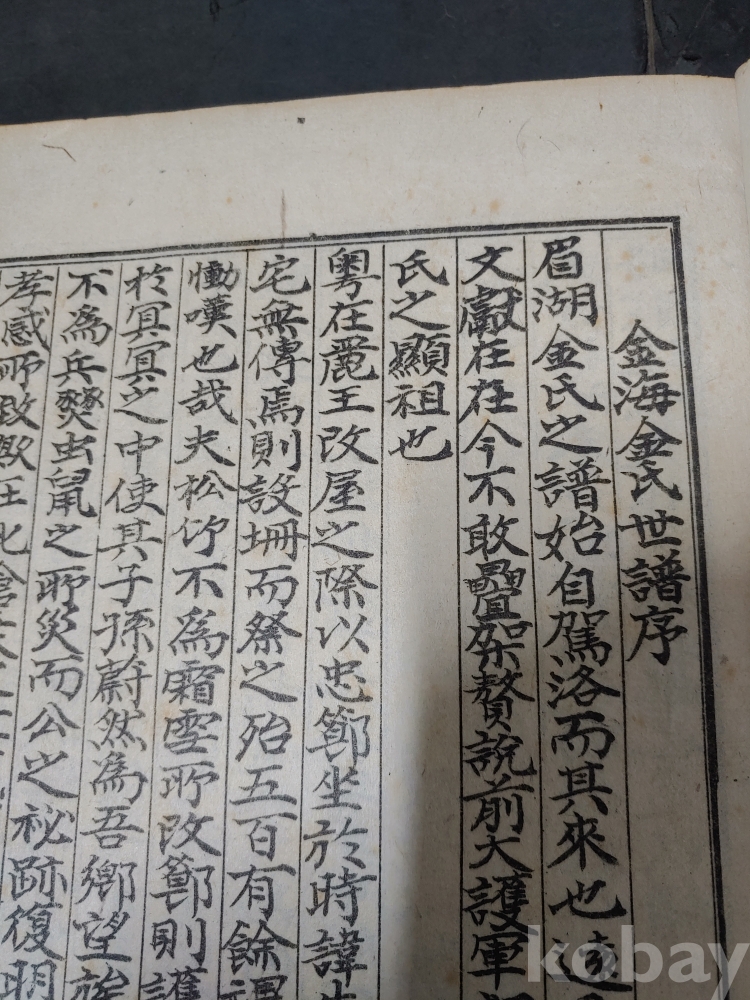 金海金氏世譜序
眉湖金氏之譜始自駕洛而其來也遠
文獻在在今不敢疊架贅說前大護軍
氏之顯祖也
粤在麗王改屋之際以忠節坐於時諱
宅無傳焉則設壇而祭之殆五百有餘
慟嘆也哉夫松竹不爲霜雪所改節則護
於冥冥之中使其子孫蔚然爲吾鄉望族
不爲兵燹虫鼠之所災而公之祕跡復明
孝感所致歟
kobay